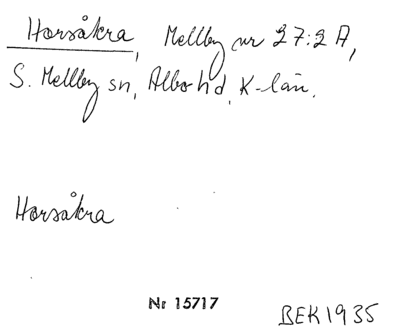 Horsåkra, Mellby nr 27:2 A,
S. Mellby sn, Albo hd, K-län.
Horsåkra
Nr 15717
BEK 1935